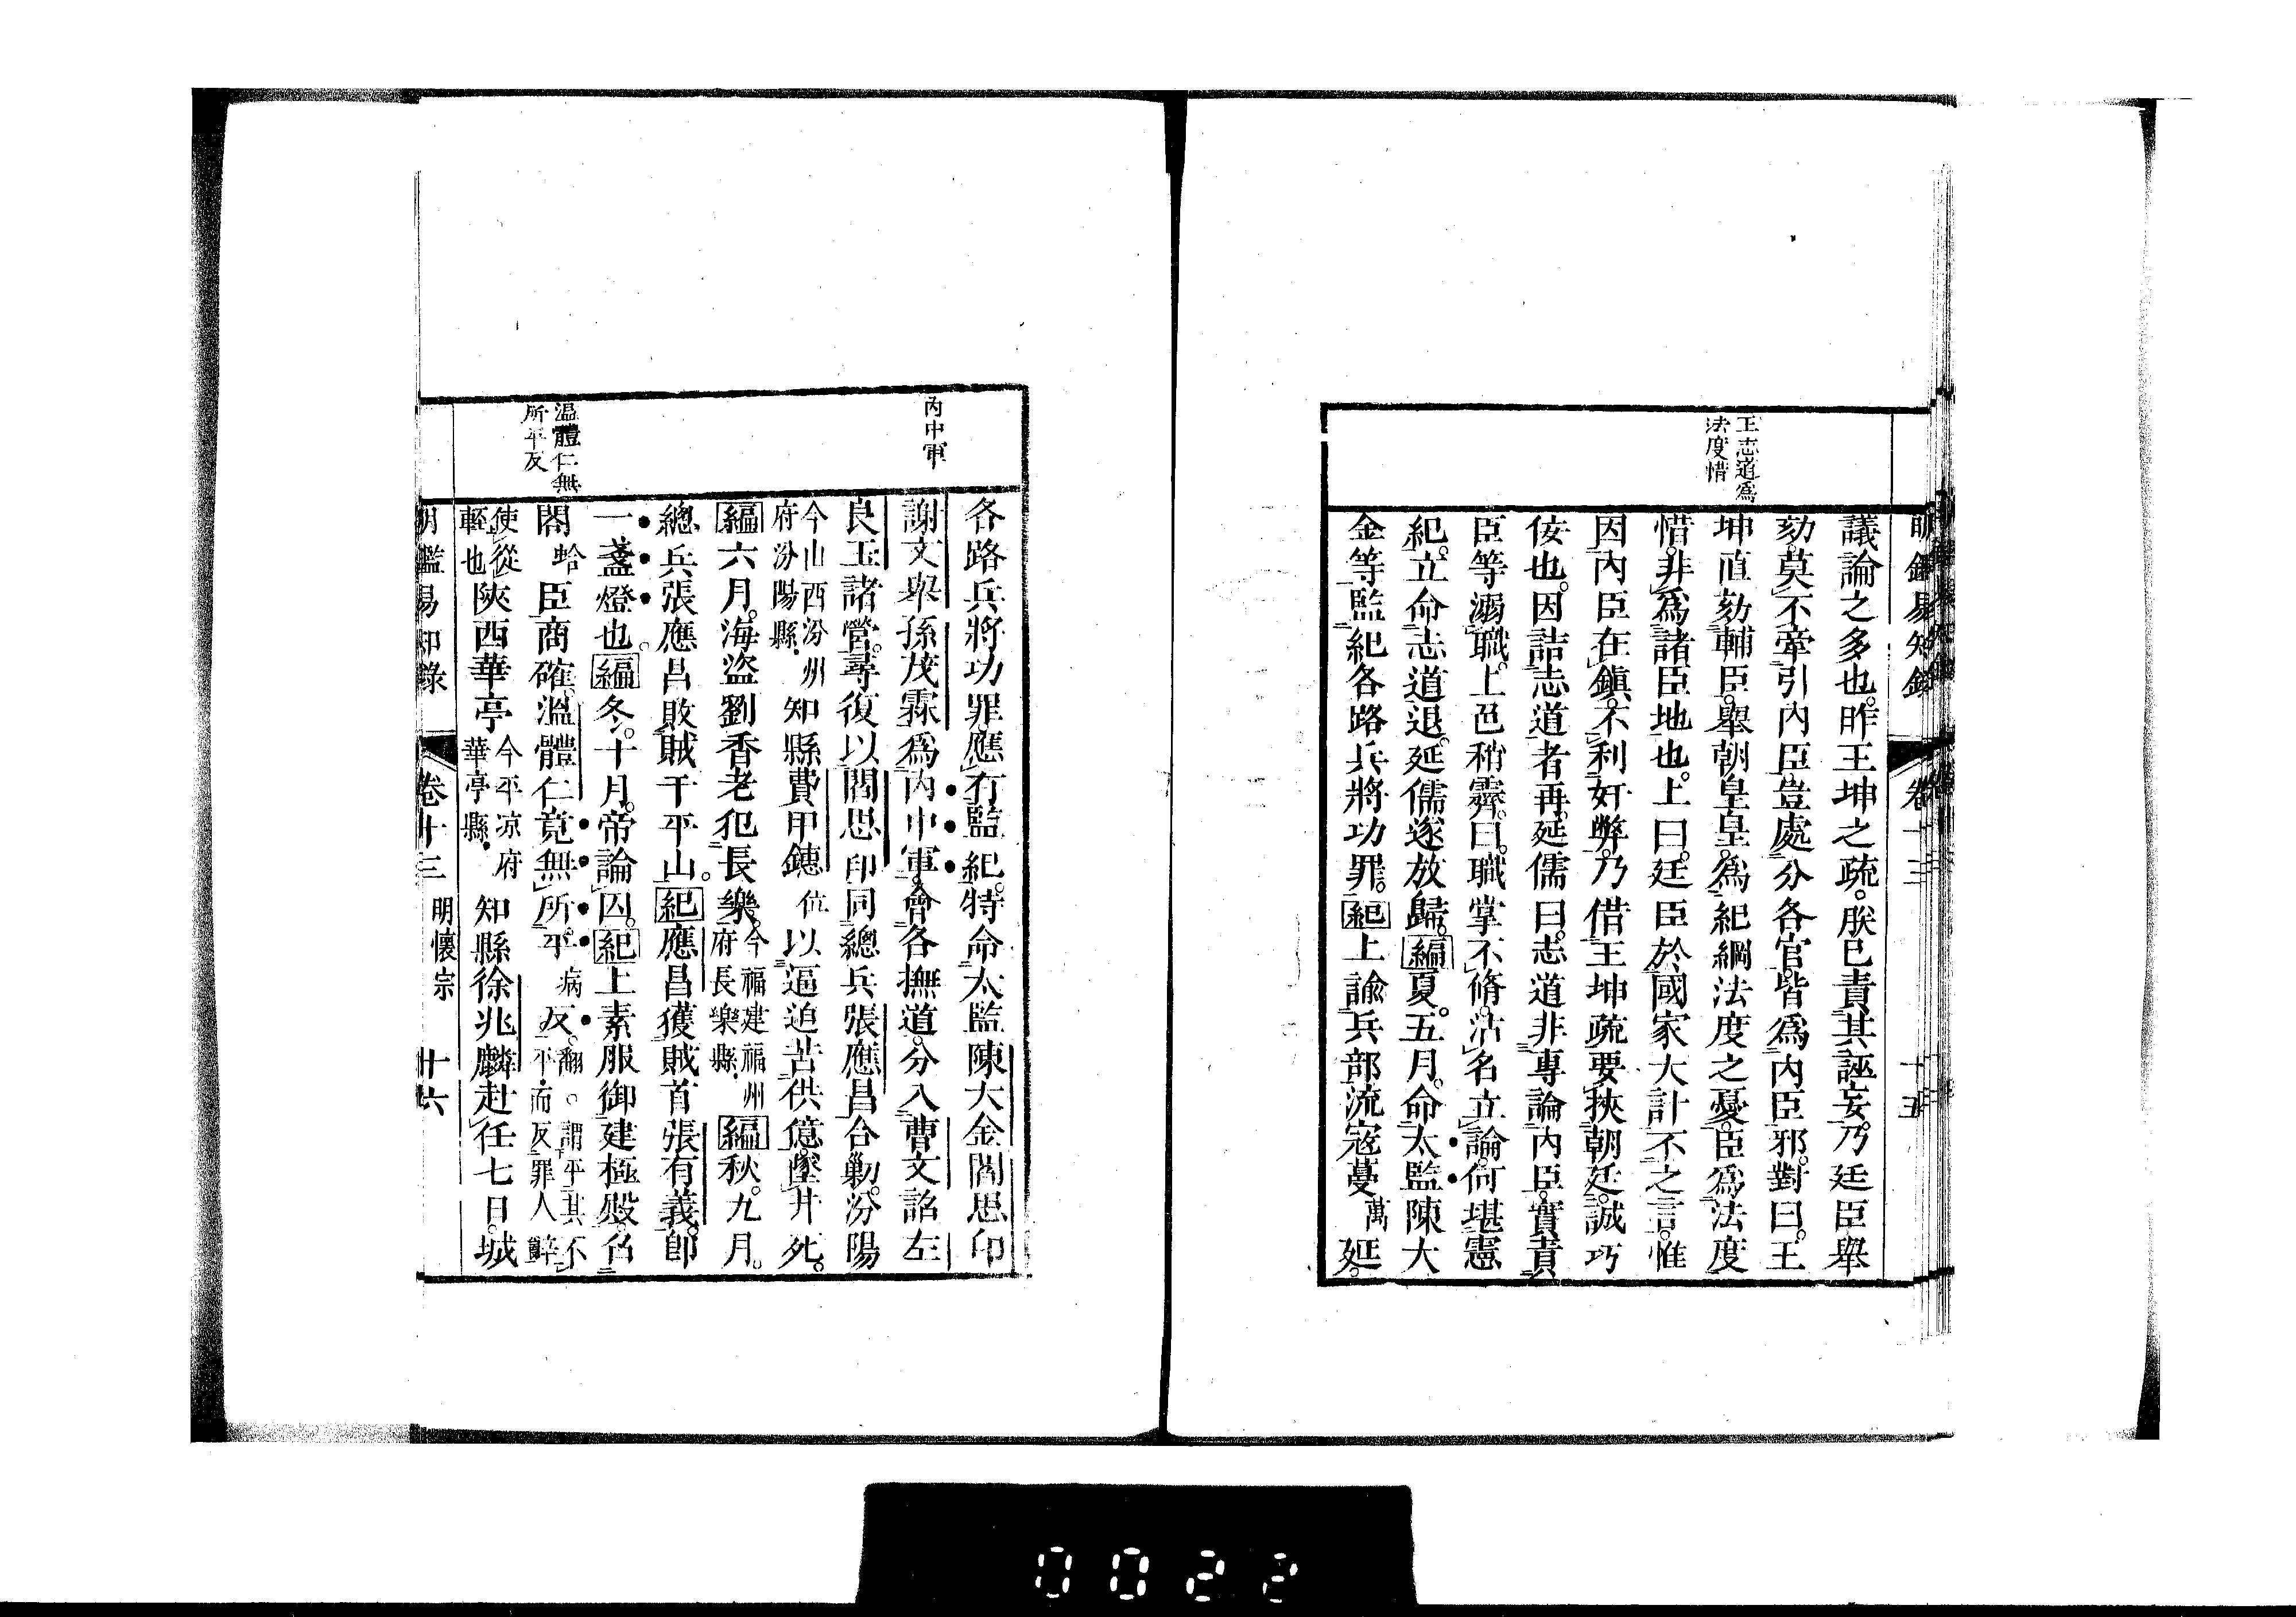 王志道爲
法度惜
議論之多也昨王坤之疏。朕已責其誣妄。乃廷臣舉
劾莫不牽引內臣。豈處分各官皆爲內臣邪。對曰。王
坤直劾輔臣。舉朝皇皇爲紀綱法度之憂。臣爲法度
惜。非爲諸臣地也。上曰。廷臣於國家大計不之言。惟
因內臣在鎮。不利奸弊。乃借王坤疏要挾朝廷。誠巧
佞也。因詰志道者再。延儒曰。志道非專論內臣。實責
臣等溺職。上色稍霽。曰。職掌不脩。沽名立論。何堪憲
紀。立命志道退。延儒遂放歸。編夏。五月。命太監陳大
金等監紀各路兵將功罪。紀上諭兵部流寇蔓萬延。
內中軍
溫體仁無
所平反
各路兵將功罪。應有監紀。特命太監陳大金閻思印
謝文舉孫茂霖爲內中軍。會各撫道。分入曹文詔左
良玉諸營。尋復以閻思印同總兵張應昌合勦。汾陽
今山西汾州
府汾陽縣。
知縣費甲鏸
位
以逼迫苦供億墜井死。
編六月。海盜劉香老犯長樂。
今福建福州
府長樂縣。
編秋。九月。
總兵張應昌敗賊于平山。紀應昌獲賊首張有義。卽
一盞燈也。編冬。十月。帝論囚。紀上素服御建極殿。召
閣
蛤
臣商確。溫體仁竟無所平
病
反。
翻。謂平其不
平。而反罪人辭
使從
輕也
陝西華亭
今平凉府
華亭縣。
知縣徐兆麟赴任七日。城
明鑑易知錄
卷十三
明懷宗
十六